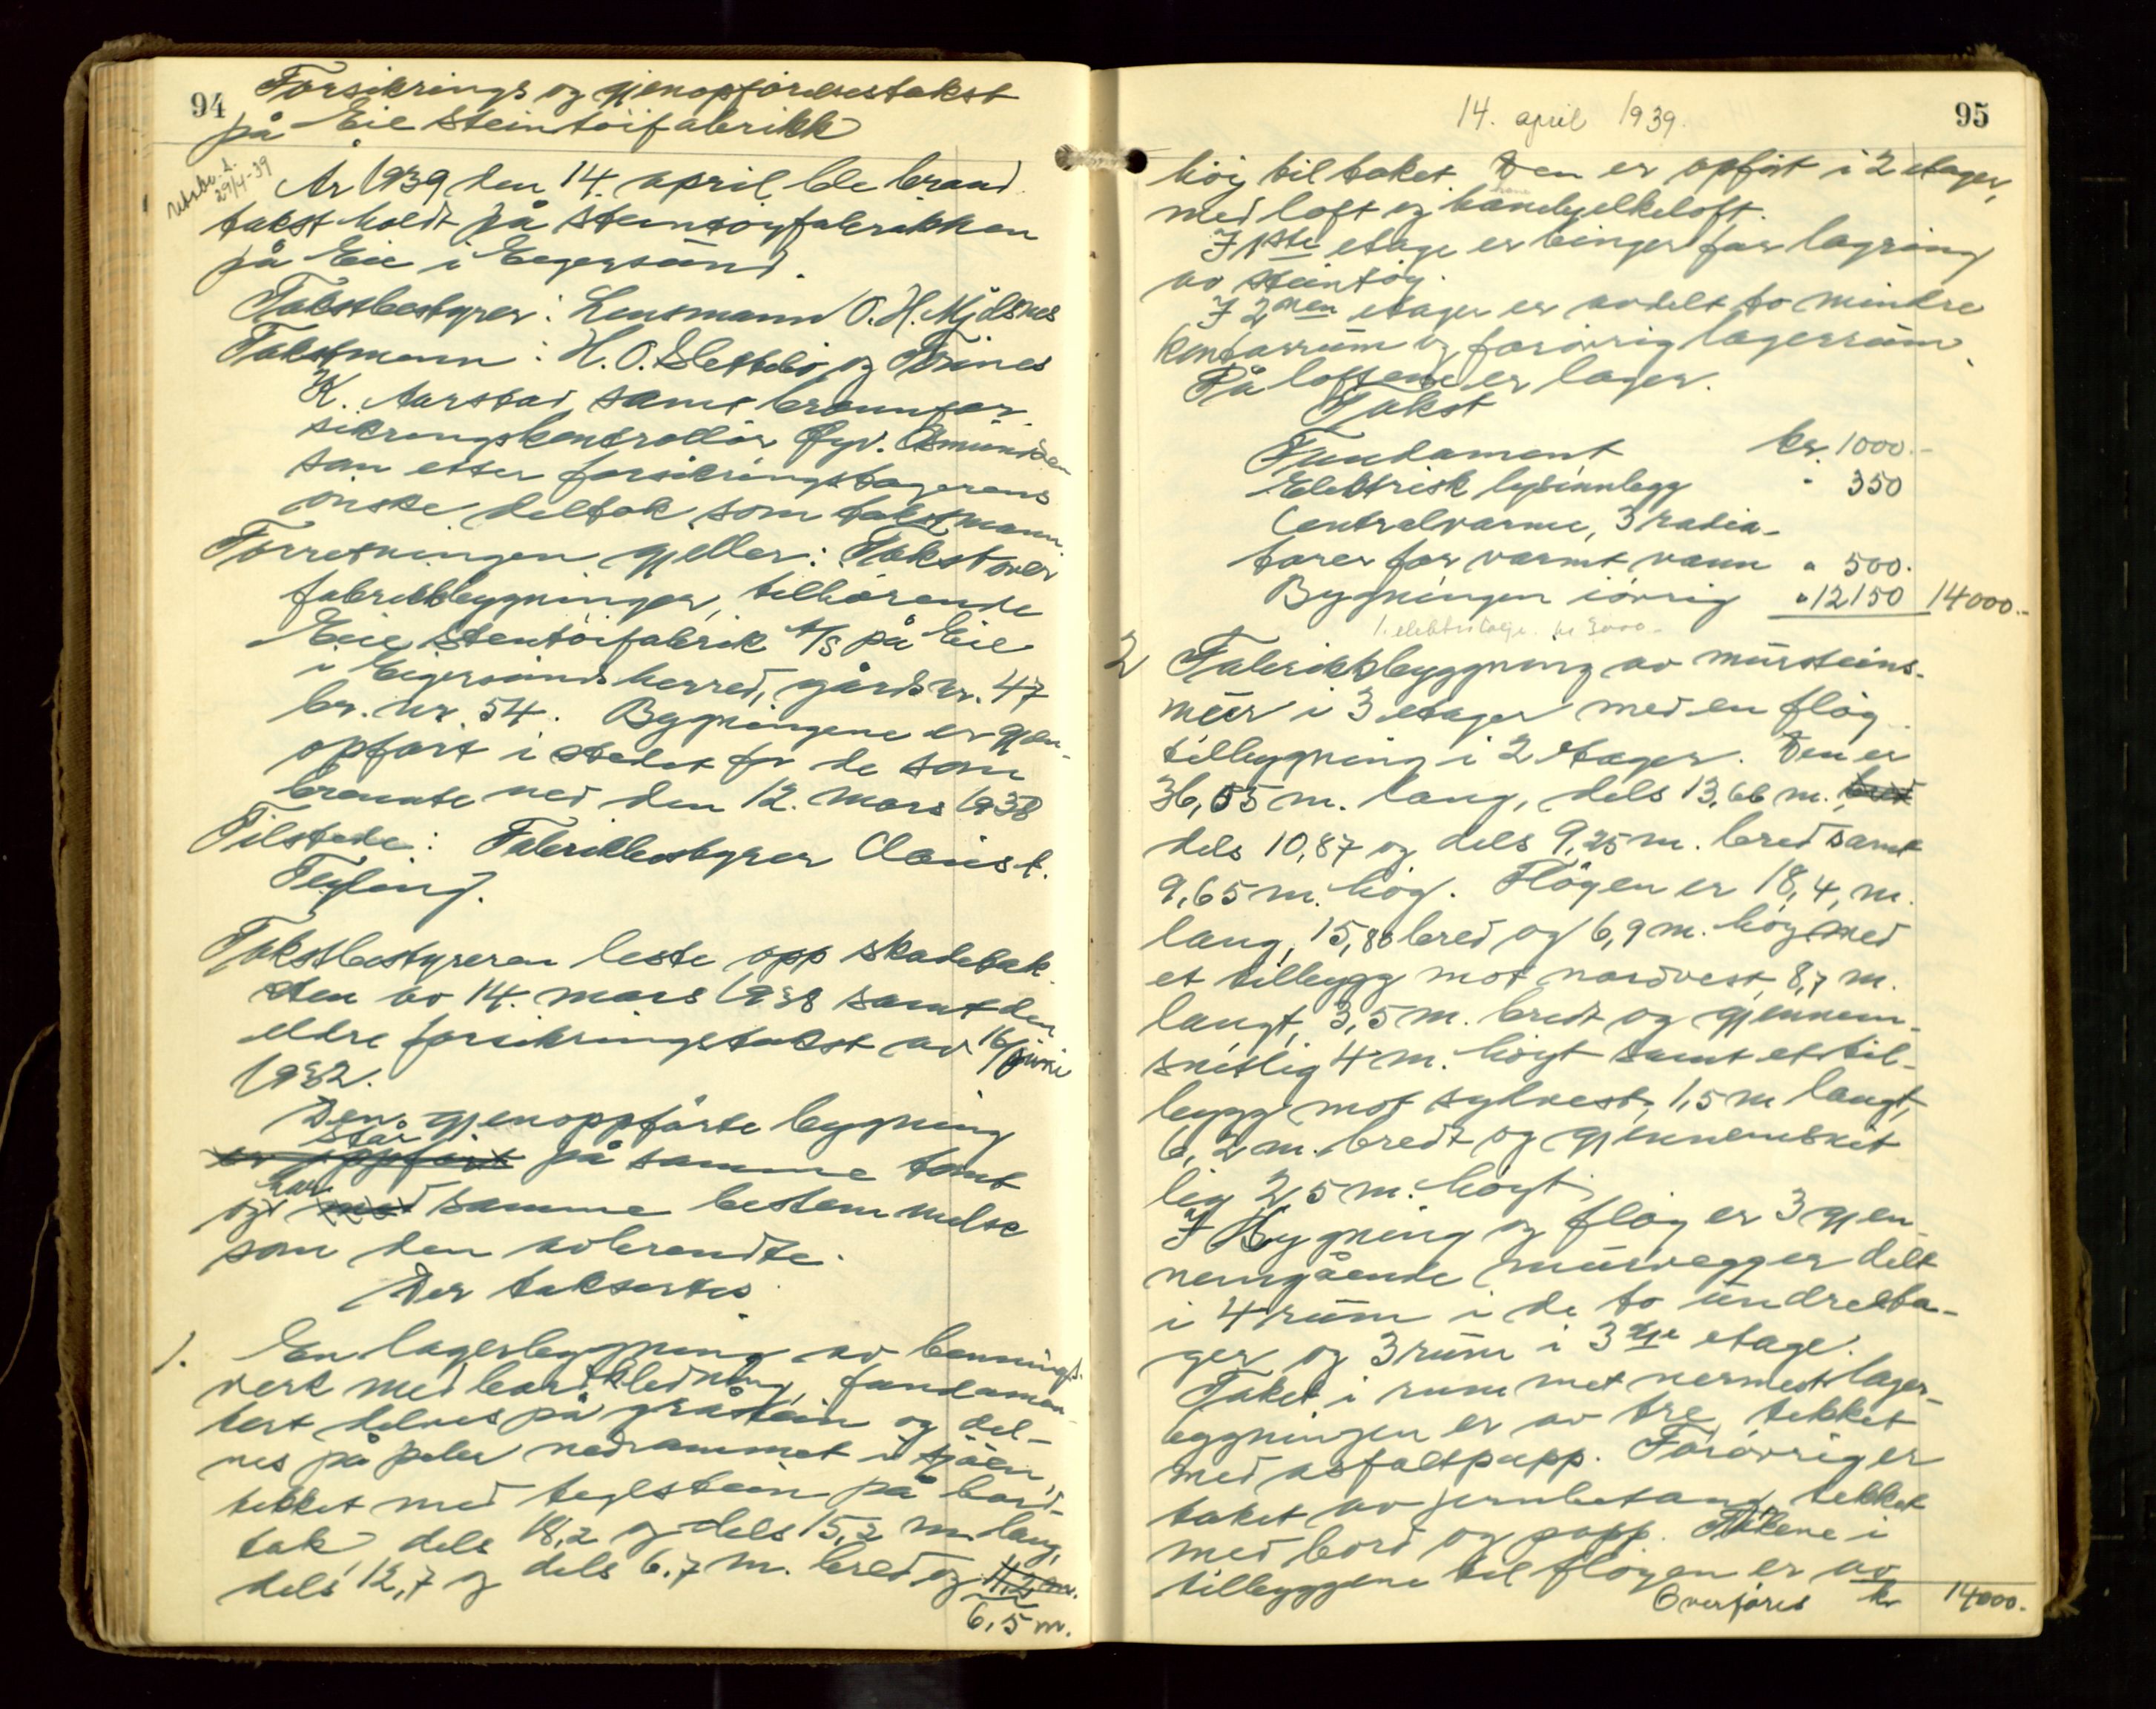 94
Forsikrings og gjenopførelsestakst
på Eie steintøifabrikk
29/4-39
År 1939 den 14. april ble brand
takst holdt på steintøyfabrikken
på Eie i Egersund.
Takstbestyrer: Lensmann O. H. Mjølsnes
Takstmenn: H. O. Slettebø og Trines
K. Aarstad samt brannfor
sikringskontrollør Øyv. Asmund
son etter forsikringstagerens
ønske deltok som takstmann.
Forretningen gjeller: Takst over
fabrikkbygninger, tilhørende
Eie stentøifabrik A/S på Eie
i Eigersunds herred, gårds nr. 47
br. nr. 54. Bygningene er gjen-
opført i stedet for de som
brennte ned den 12. mars 1938
Tilstede: Fabrikkbestyrer Claus t.
Feyling.
Takstbestyreren leste opp skadetak
sten av 14. mars 1938 samt den
eldre forsikringstakst av 16/juni
1932.
Den gjenoppførte bygning
står
er oppført på samme tomt
har
og med samme bestemmelse
som den avbrendte.
Der taksertes
1. En lagerbygning av bennings-
verk med bordkledning, fundamen-
tert delvis på gråstein og del-
vis på peler nedrammet i sjøen,
tekket med teglstein på bord-
tak dels 18,2 og dels 15,2 m. lang,
dels 12,7 og dels 6.7 m. bred og 11,2 m.
6,5 m.
14. april 1939.
95
høy til taket. Den er opført i 2 etager,
med loft og hanebjelkeloft.
I 1ste etage er binger for lagring
av steintøy.
I 2nen etage er avdelt to mindre
kontorrum og forøvrig lagerrum.
På loftene er lager.
Takst
Fundament kr. 1000.-
Elektrisk lysinnlegg " 350
Centralvarme, 3 radia-
torer for varmt vann " 500.
Bygningen iøvrig " 12150 14000.-
2 Fabrikkbyggning av mursteins-
mur i 3 etager med en fløy
tilbygning i 2 etager. Den er
36,05 m. lang, dels 13,66 m. bred
dels 10,87 og dels 9,25 m. bred samt
9,65 m. høg. Fløyen er 18,4 m.
lang, 15,80 bred og 6,9 m. høg med
et tilbygg mot nordvest, 8,7 m.
langt, 3,5 m. bredt og gjennem-
snitlig 4 m. høgt samt et til-
bygg mot sydvest, 1,5 m langt,
6,2 m. bredt og gjennemsnit
lig 2,5 m. høgt.
I Bygning og fløy er 3 gjen
nemgående murvegger delt
i 4 rum i de to undreeta-
ger og 3 rum i 3dje etage.
Taket i rummet nermest lager-
bygningen er av tre tekket
med asfaltpapp. Forøvrig er
taket av jernbetong tekket
med bord og papp. Takene i
tilbyggene til fløyen er av
Overføres kr 14000.-